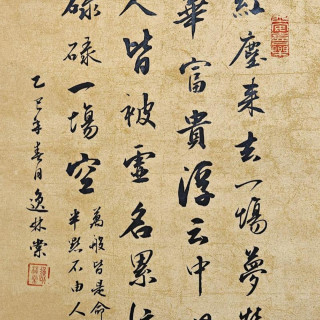 紅塵来去一場夢
華富貴浮云中
人皆被虛名累
碌碌一場空
萬般皆是命
半點不由人
乙巳年春月逸林棠